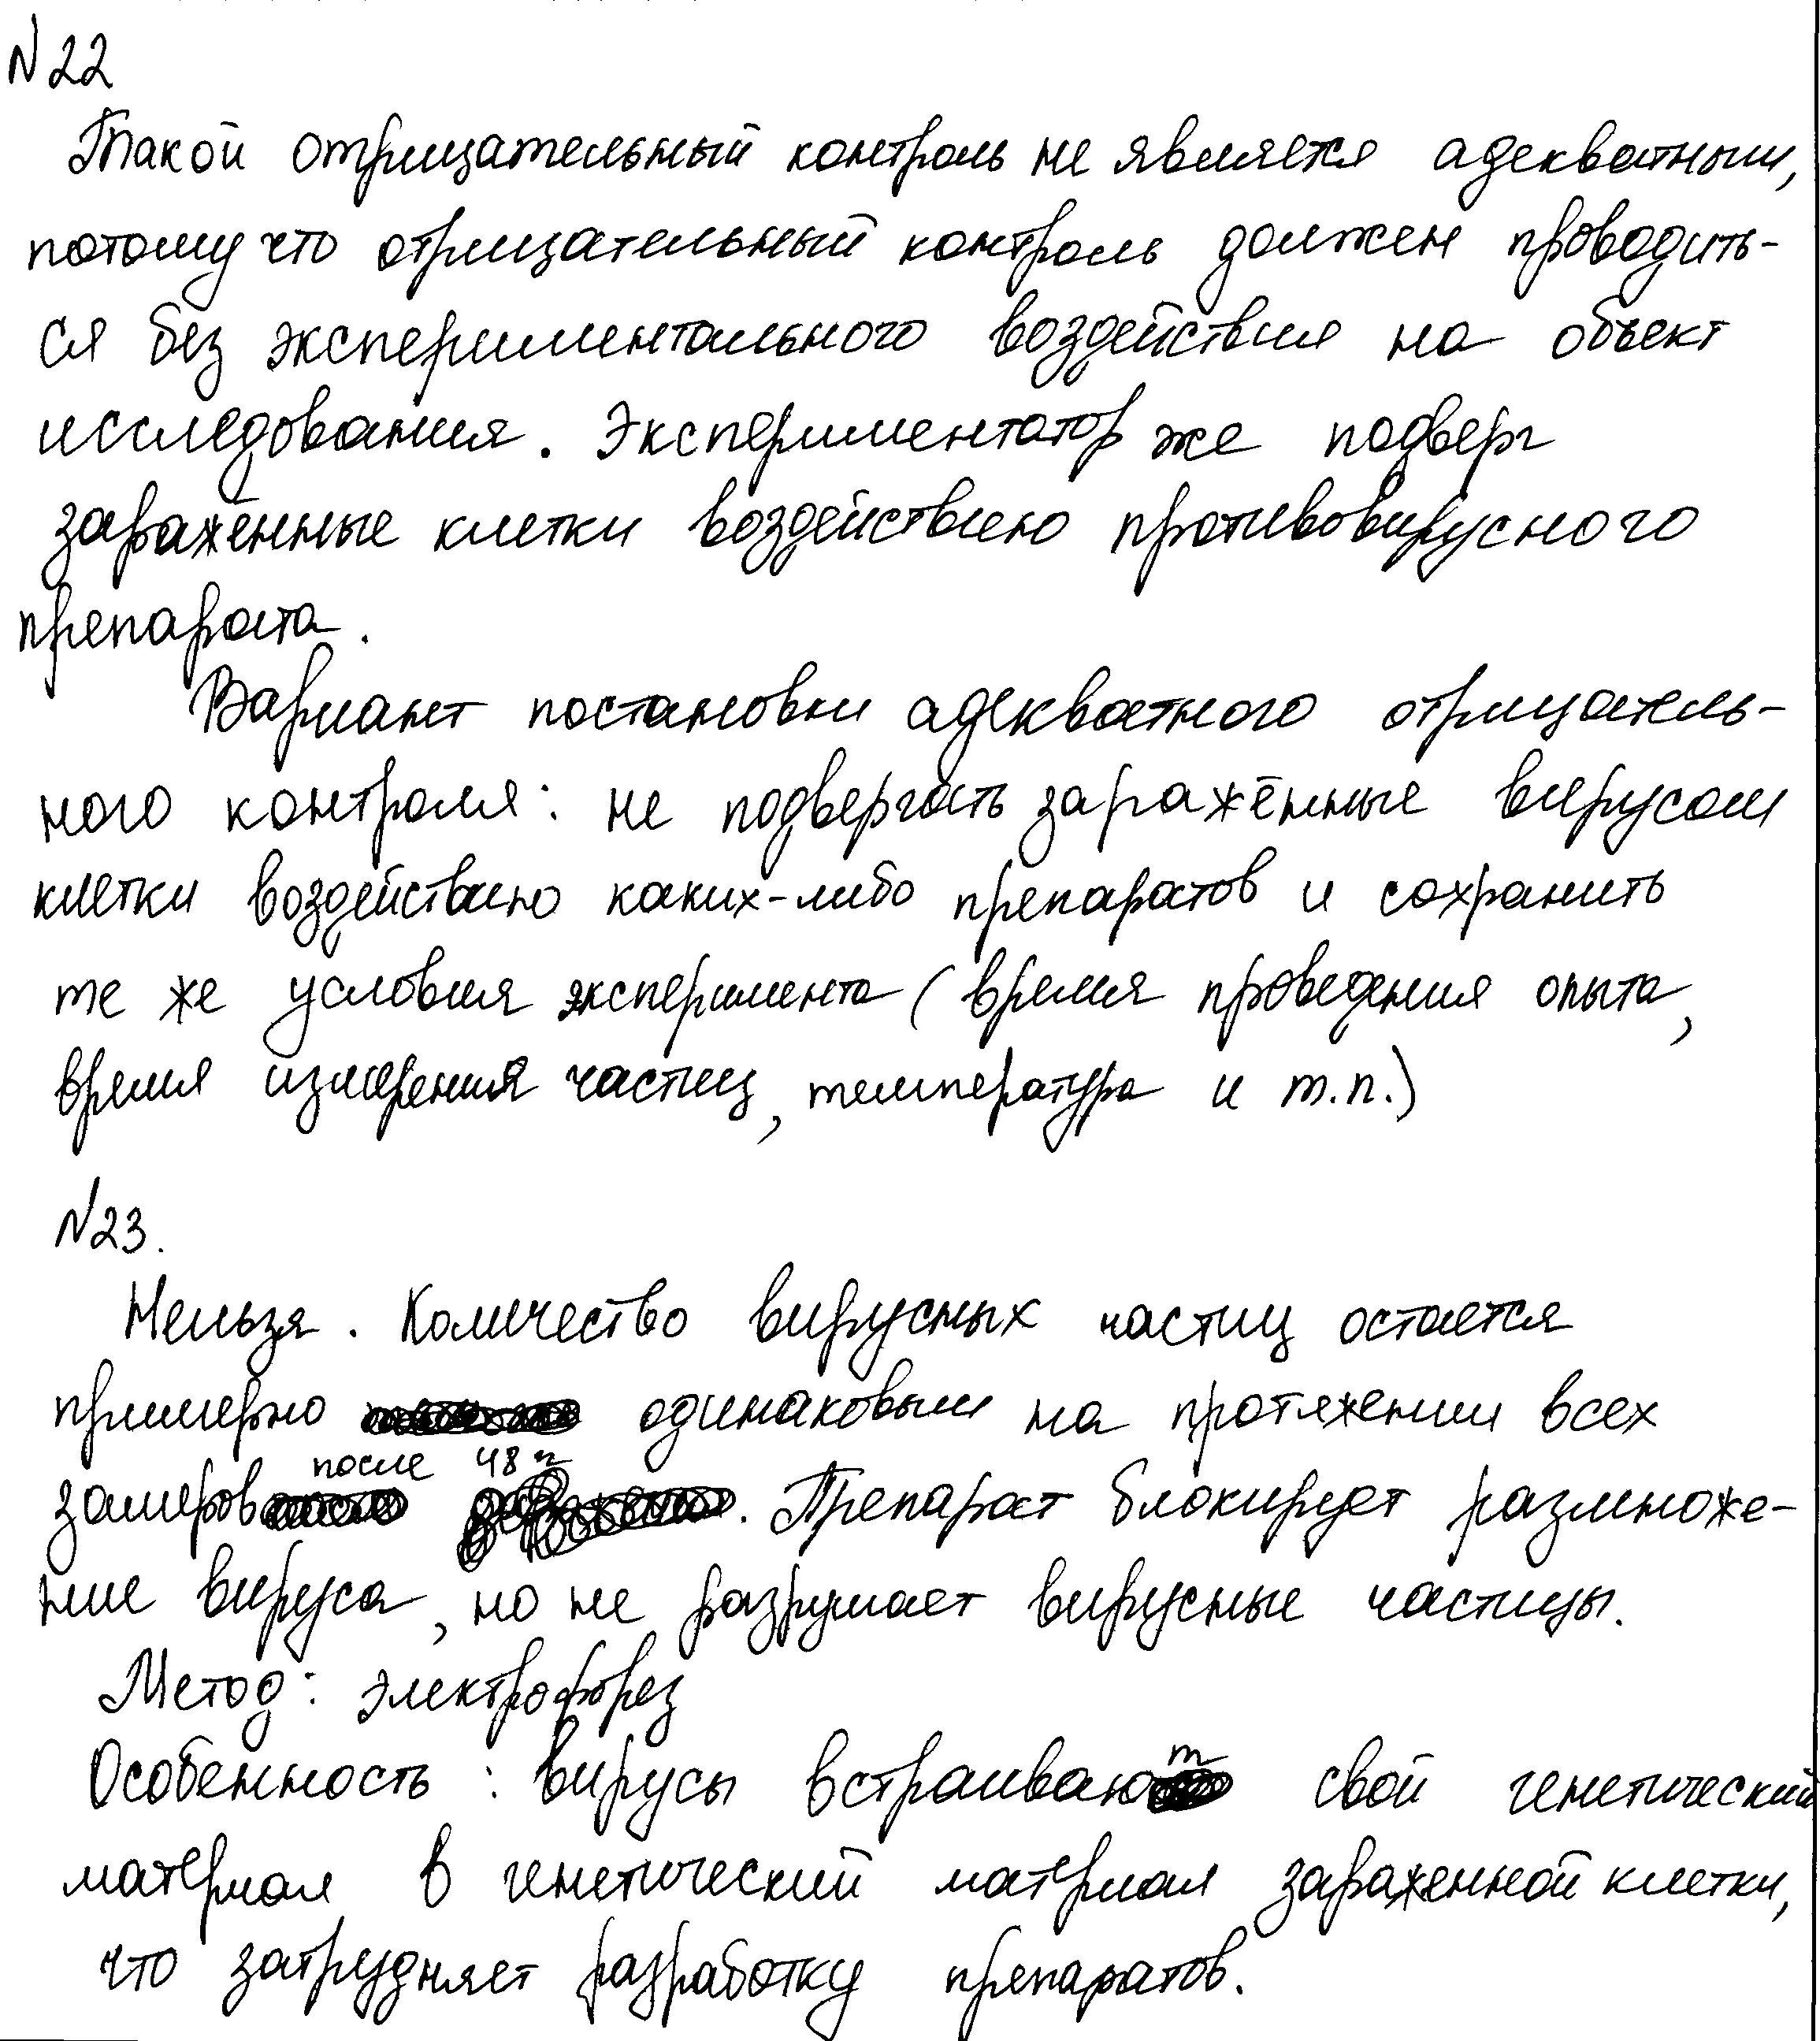 N22
Такой отрицательный контроль не является адекватным,
потому что отрицательный контроль должен проводить-
ся без экспериментального воздействия на объект
исследования. Экспериментатор же подверг
заражённые клетки воздействию противовирусного
препарата.
Вариант постановки адекватного отрицатель-
ного контроля: не подвергать заражённые вирусом
клетки воздействию каких-либо препаратов и сохранить
те же условия эксперимента (время проведения опыта,
время измерения частиц, температура и т.п.)
N23.
Нельзя. Количество вирусных частиц остается
примерно одинаковым на протяжении всех
замеров после 48 ч. Препарат блокирует размноже-
ние вируса, но не разрушает вирусные частицы.
Метод: электрофорез
Особенность: вирусы встраивают свой генетический
материал в генетический материал зараженной клетки,
что затрудняет разработку препаратов.